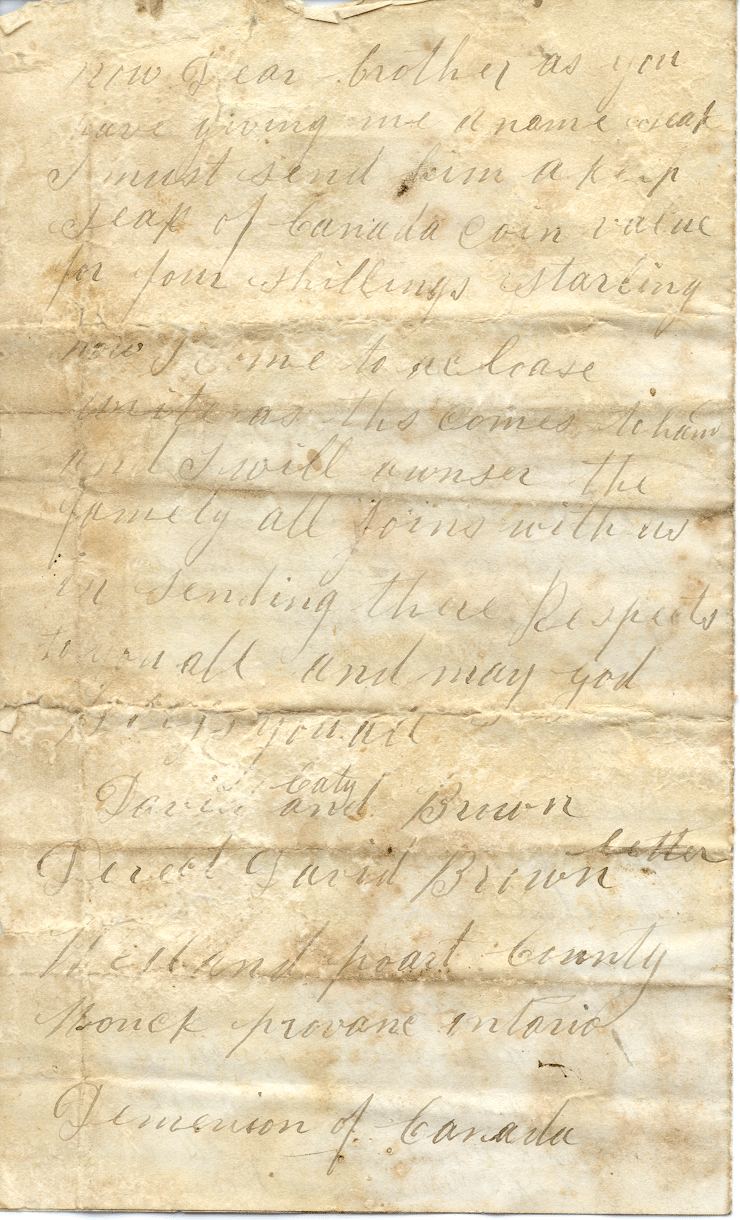 now Dear brother as you
have giving me a name seak
I must send him a keep
seak of Canada Coin value
for four shillings starling
now I come to a close
write as ths comes to han
and I will awnser the
famely all Joins with us
in sending there Respects
to you all and may god
you all
Caty
David and Brown
letter
Derect David Brown
Welland poart County
Monck provane ontario
Demenion of Canada